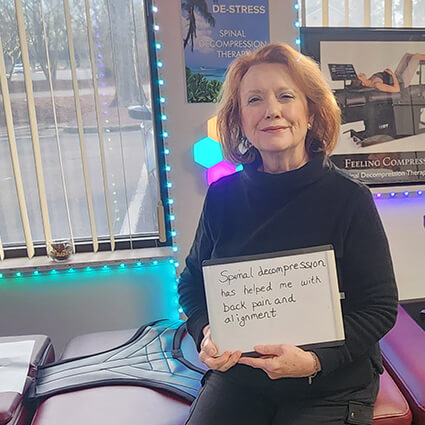 DE-STRESS
SPINAL
DECOMPRESSION
THERAPY
FEELING COMPRESS
inal Decompression Therap
Spinal decompression
has helped me with
back pain and
alignment